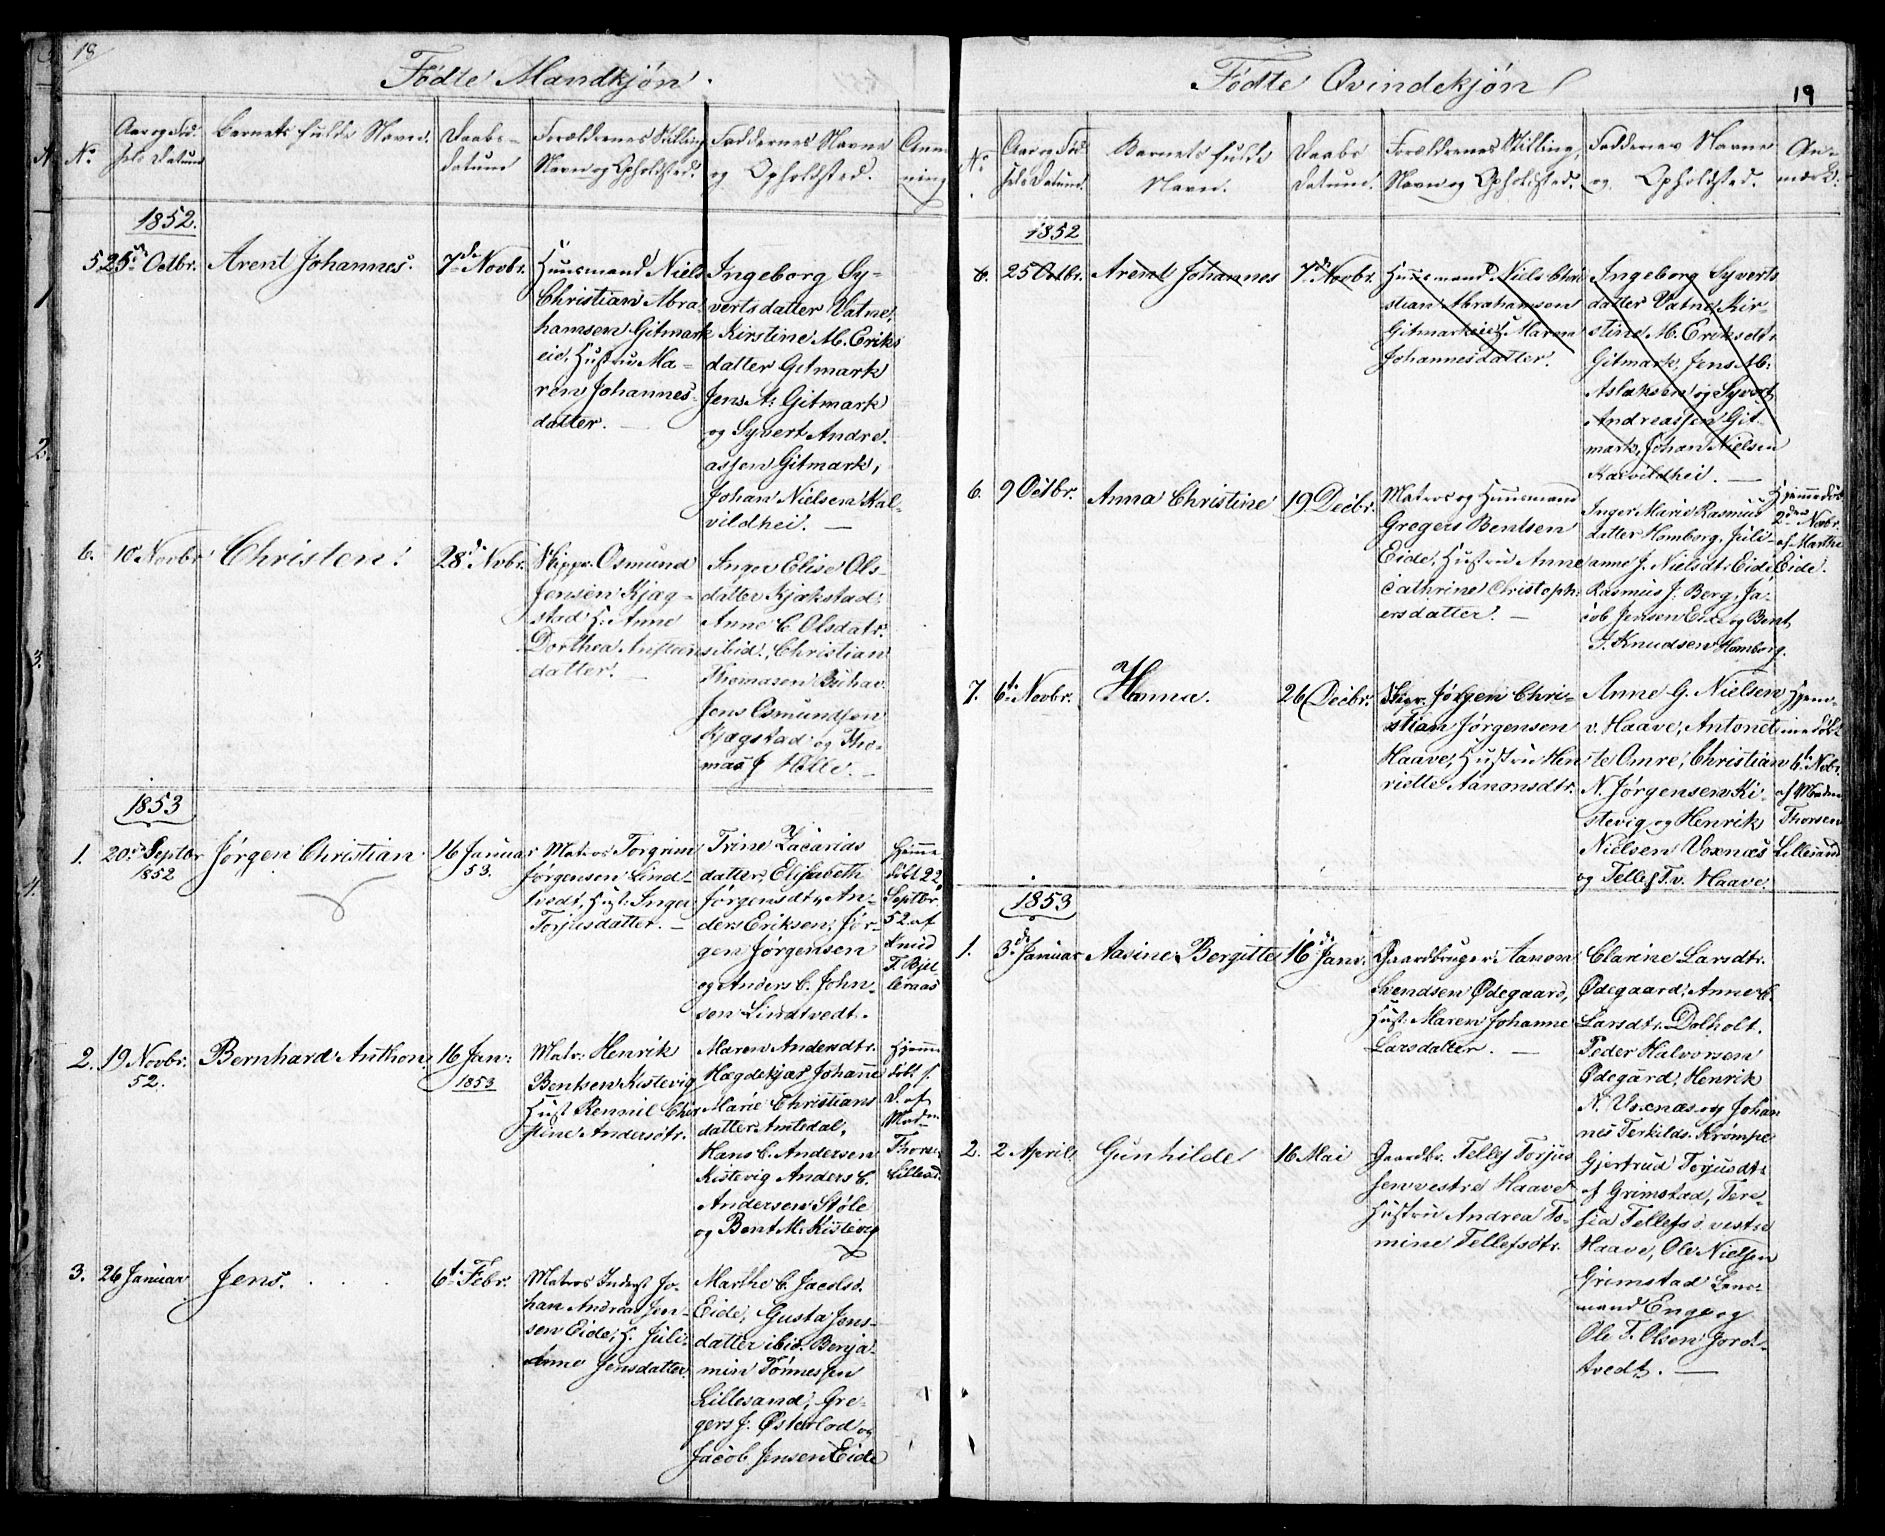 18
Fødte Mandkjøn.
No
Aar og Fød-
sels Datum
Barnets fulde Navn.
Daabs-
datum
Forældrenes Stilling
Navn og Opholdsted.
Faddernes Navne
og Opholdsted.
Anm
ning
1852.
5. 25de Octbr. Arent Johannes. 7de Novbr.
Huusmand Niels
Christian Abra-
hamsen Gitmark
eie, Hustru Ma-
ren Johannes-
datter.
Ingeborg Sy-
vertsdatter Vatne,
Kirstine M. Eriks
datter Gitmark
Jens A: Gitmark
og Syvert Andre-
assen Gitmark,
Johan Nielsen Kal-
vildhei.
6. 10 Novbr Christen. 28de Novbr.
Skippr. Osmund
Jensen Kjæg-
stad H. Anne
Dorthea Austens
datter.
Inger Elise Ols-
datter Kjækstad,
Anne C. Olsdatr.
ibid., Christian
Thomasen
Jens Osmundsen
Kjægstad og Tho-
mas J Hille.
1853
1. 20de Septbr
1852
Jørgen Christian
16 Januar
53.
Matros Torgrim
Jørgensen Lind-
tvedt, Hust. Inger
Torjusdatter.
Trine Zacarias
datter, Elisabeth
Jørgensdtr, An-
ders Eriksen, Jør-
gen Jørgensen
og Anders C. John-
sen Lindtvedt.
Hjemme
døbt 22
Septbr.
52 af
Knud
T. Bjel
leraas
2. 19 Novbr.
52.
Bernhard Anthon
16 Jan:
1853
Matr: Henrik
Bentsen Kistevig
Hust Rennil Chri
stine Andersdtr.
Maren Andersdtr.
Hægdekjær Johanne
Marie Christians
datter Amtedal,
Hans C. Andersen
Kistevig Anders C.
Andersen Støle
og Bent M. Kistevig
Hjemme
døbt s.
D. af
Madm
Thorsen
Lillesd.
3. 26 Januar Jens. 6te Febr.
Matros Inderst Jo-
han Andreas Jen-
sen Eide, H. Juli-
Anne Jensdatter
Marthe C. Jacobsd.
Eide, Gusta Jens-
datter ibid. Benja-
min Tønnessen
Lillesand, Gre-
gers J. Østerlod og
Jacob Jensen Eide
Fødte Qvindekjøn
19
No.
Aar og Fød
sels Datum.
Barnets fulde
Navn.
Daabs
Datum.
Forældrenes Stilling,
Navn og Opholdsted.
Faddernes Navne
og Opholdsted.
An-
mærk:
1852
25 Octbr. Arent Johannes 7de Novbr.
Huusmand Niels Chri
stian Abrahamsen
Gitmarkeie H. Maren
Johannesdatter.
Ingeborg Syverts
datter Vatne, Kir-
stine M. Eriksdtr
Gitmark, Jens A:
Aslaksen og Syvert
Andreassen Git-
mark, Johan Nielsen
Kalvildhei.
6. 9 Octbr. Anna Christine 19. Decbr.
Matros og Huusmand
Gregers Bentsen
Eide, Hustru Anne
Cathrine Christoph-
ersdatter.
Inger Marie Rasmus
datter Homborg, Juli-
anne J. Nielsdtr Eide,
Rasmus J. Berg, Ja-
cob Jensen Eide og Bent
I. Knudsen Homborg.
Hjemmedøb
2den Novbr.
af Marthe
Eide.
7. 6te Novbr. Hanna. 26 Decbr.
Skipr. Jørgen Chri-
stian Jørgensen
Haave, Hustru Hen
rielle Aanonsdtr.
Anne G. Nielsen
v. Haave, Antonet
te Omre, Christian
N. Jørgensen Ki-
stevig og Henrik
Nielsen Voxnæs
og Tellef T. v. Haave
Hjem-
medøbt
6te Nobr.
af Madm
Thorsen
Lillesand
1853
1. 3de Januar Aasine Bergitte 16de Janr.
Gaardbruger Aanon
Svendsen Ødegaard,
Hust. Maren Johanne
Larsdatter.
Clarine Larsdtr.
Ødegaard, Anne C.
Larsdtr. Dolholt.
Peder Halvorsen
Ødegård, Henrik
N. Voxnæs og Johan
nes Terkilds. Krømpe
2. 2 April Gunhilde 16 Mai
Gaardbr. Tellef Torjus
sen vestre Haave
Hustru Andrea To-
mine Tellefsdtr.
Gjertrud Torjusdtr
af Grimstad, Tere-
sia Tellefsd vestre
Haave, Ole Nielsen
Grimstad Lens-
mand Enge og
Ole T. Olsen Jord-
tvedt.